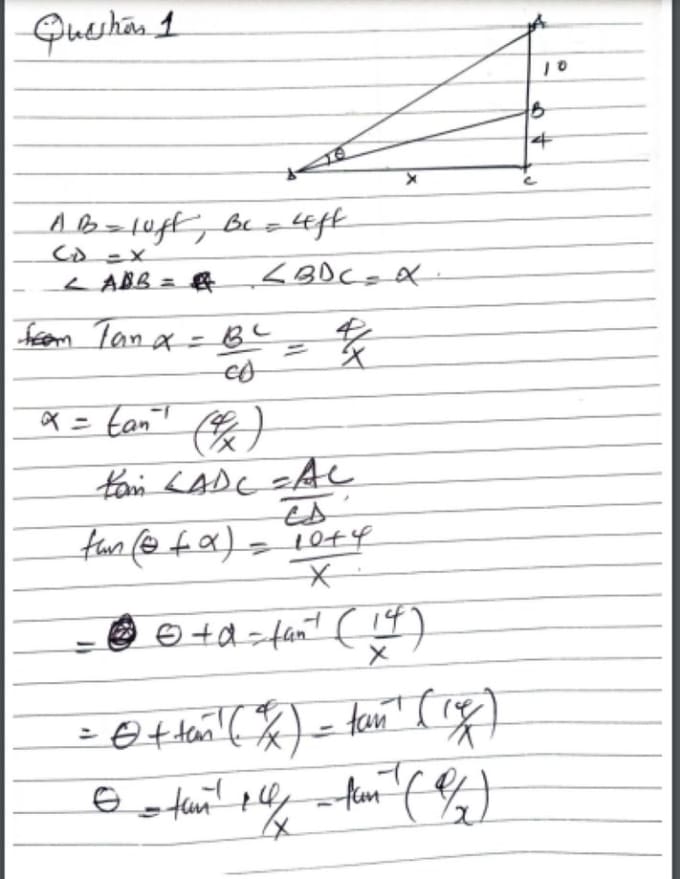 Question 1
A
10
B
4
θ
D
x
C
AB = 10ft, BC = 4ft
CD = x
∠ADB = ∠BDC = α.
from Tan α = BC/CD = 4/x
α = tan⁻¹ (4/x)
tan ∠ADC = AC/CD
tan (θ + α) = 10+4/x
= θ + α = tan⁻¹ (14/x)
= θ + tan⁻¹ (4/x) = tan⁻¹ (14/x)
θ = tan⁻¹ 14/x - tan⁻¹ (4/x)